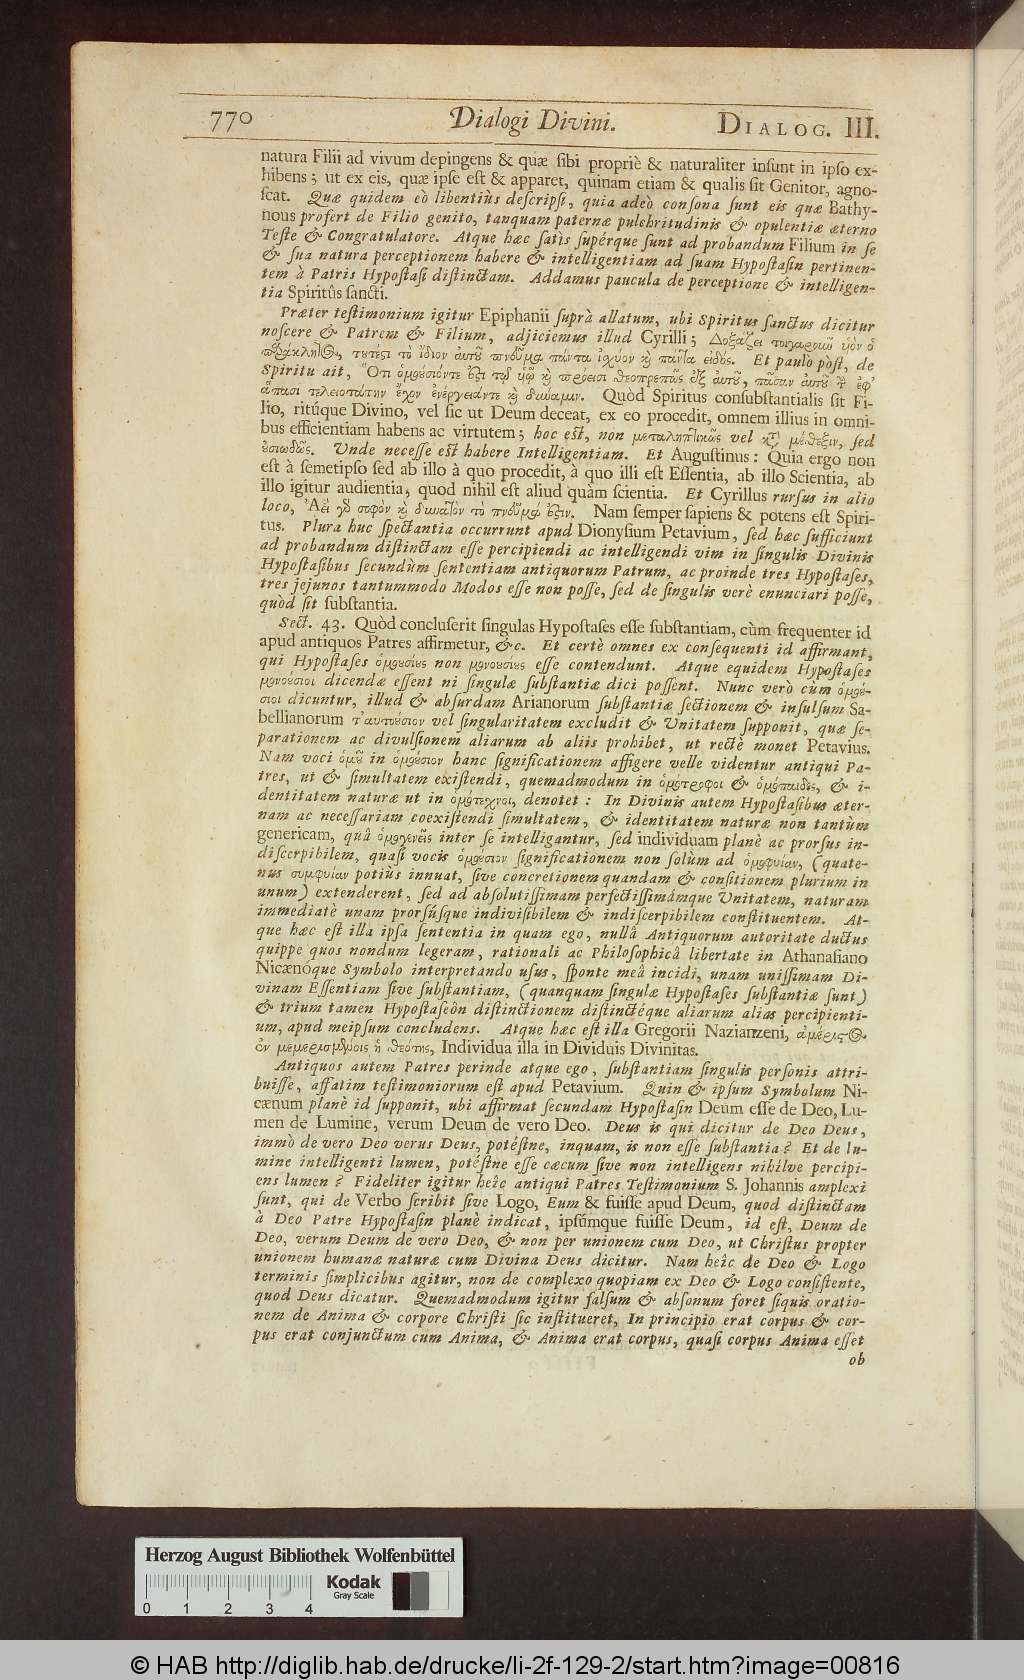 770 Dialogi Divini. DIALOG. III.
natura Filii ad vivum depingens & quæ ſibi propriè & naturaliter inſunt in ipſo ex-
hibens; ut ex eis, quæ ipſe eſt & apparet, quinam etiam & qualis ſit Genitor, agno-
ſcat. Quæ quidem eò libentiùs deſcripſi, quia adeò conſona ſunt eis quæ Bathy-
nous profert de Filio genito, tanquam paternæ pulchritudinis & opulentiæ æterno
Teſte & Congratulatore. Atque hæc ſatis ſupérque ſunt ad probandum Filium in ſe
& ſua natura perceptionem habere & intelligentiam ad ſuam Hypoſtaſin pertinen-
tem à Patris Hypoſtaſi diſtinctam. Addamus paucula de perceptione & intelligen-
tia Spiritûs ſancti.
Præter teſtimonium igitur Epiphanii ſuprà allatum, ubi Spiritus ſanctus dicitur
noſcere & Patrem & Filium, adjiciemus illud Cyrilli; Δοξάζει τοιγαροῦν υἱὸν ὁ
παράκλητος, τουτέστι τὸ ἴδιον αὐτοῦ πνεῦμα πάντα ἰσχύον καὶ πάντα εἰδός. Et paulò pòſt, de
Spiritu ait, Ὅτι ὁμοούσιόν τε ἐστι τῷ υἱῷ καὶ πρόεισι θεοπρεπῶς ἐξ αὐτοῦ, πᾶσαν αὐτοῦ τὴν ἐφ'
ἅπασι τελειοτάτην ἔχον ἐνέργειάν τε καὶ δύναμιν. Quòd Spiritus conſubſtantialis ſit Fi-
lio, ritúque Divino, vel ſic ut Deum deceat, ex eo procedit, omnem illius in omni-
bus efficientiam habens ac virtutem; hoc eſt, non μεταληπτικῶς vel κατὰ μέθεξιν, ſed
οὐσιωδῶς. Unde neceſſe eſt habere Intelligentiam. Et Auguſtinus: Quia ergo non
eſt à ſemetipſo ſed ab illo à quo procedit, à quo illi eſt Eſſentia, ab illo Scientia, ab
illo igitur audientia, quod nihil eſt aliud quàm ſcientia. Et Cyrillus rurſus in alio
loco, Ἀεὶ γὰρ σοφὸν καὶ δυνατὸν τὸ πνεῦμα ἐστιν. Nam ſemper ſapiens & potens eſt Spiri-
tus. Plura huc ſpectantia occurrunt apud Dionyſium Petavium, ſed hæc ſufficiunt
ad probandum diſtinctam eſſe percipiendi ac intelligendi vim in ſingulis Divinis
Hypoſtaſibus ſecundùm ſententiam antiquorum Patrum, ac proinde tres Hypoſtaſes,
tres jejunos tantummodo Modos eſſe non poſſe, ſed de ſingulis verè enunciari poſſe,
quòd ſit ſubſtantia.
Sect. 43. Quòd concluſerit ſingulas Hypoſtaſes eſſe ſubſtantiam, cùm frequenter id
apud antiquos Patres affirmetur, &c. Et certè omnes ex conſequenti id affirmant,
qui Hypoſtaſes ὁμοουσίους non μονοουσίους eſſe contendunt. Atque equidem Hypoſtaſes
μονοούσιοι dicendæ eſſent ni ſingulæ ſubſtantiæ dici poſſent. Nunc verò cùm ὁμοού-
σιοι dicuntur, illud & abſurdam Arianorum ſubſtantiæ ſectionem & inſulſum Sa-
bellianorum ταυτούσιον vel ſingularitatem excludit & Unitatem ſupponit, quæ ſe-
parationem ac divulſionem aliarum ab aliis prohibet, ut rectè monet Petavius.
Nam voci ὁμοῦ in ὁμοούσιον hanc ſignificationem affigere velle videntur antiqui Pa-
tres, ut & ſimultatem exiſtendi, quemadmodum in ὁμότροφοι & ὁμόπαιδες, & i-
dentitatem naturæ ut in ὁμότεχνοι, denotet: In Divinis autem Hypoſtaſibus æter-
nam ac neceſſariam coexiſtendi ſimultatem, & identitatem naturæ non tantùm
genericam, quâ ὁμογενεῖς inter ſe intelligantur, ſed individuam planè ac prorſus in-
diſcerpibilem, quaſi vocis ὁμοούσιον ſignificationem non ſolùm ad ὁμοφυίαν, (quate-
nus συμφυίαν potiùs innuat, ſive concretionem quandam & conſitionem plurium in
unum) extenderent, ſed ad abſolutiſſimam perfectiſſimámque Unitatem, naturam
immediatè unam prorſúsque indiviſibilem & indiſcerpibilem conſtituentem. At-
que hæc eſt illa ipſa ſententia in quam ego, nullâ Antiquorum autoritate ductus
quippe quos nondum legeram, rationali ac Philoſophicâ libertate in Athanaſiano
Nicænóque Symbolo interpretando uſus, ſponte meâ incidi, unam uniſſimam Di-
vinam Eſſentiam ſive ſubſtantiam, (quanquam ſingulæ Hypoſtaſes ſubſtantiæ ſunt)
& trium tamen Hypoſtaſeôn diſtinctionem diſtinctéque aliarum alias percipienti-
um, apud meipſum concludens. Atque hæc eſt illa Gregorii Nazianzeni, ἀμέριστος
ἐν μεμερισμένοις ἡ θεότης, Individua illa in Dividuis Divinitas.
Antiquos autem Patres perinde atque ego, ſubſtantiam ſingulis perſonis attri-
buiſſe, affatim teſtimoniorum eſt apud Petavium. Quin & ipſum Symbolum Ni-
cæenum planè id ſupponit, ubi affirmat ſecundam Hypoſtaſin Deum eſſe de Deo, Lu-
men de Lumine, verum Deum de vero Deo. Deus is qui dicitur de Deo Deus,
immò de vero Deo verus Deus, potéſtne, inquam, is non eſſe ſubſtantia? Et de lu-
mine intelligenti lumen, potéſtne eſſe cæcum ſive non intelligens nihílve percipi-
ens lumen? Fideliter igitur heîc antiqui Patres Teſtimonium S. Johannis amplexi
ſunt, qui de Verbo ſcribit ſive Logo, Eum & fuiſſe apud Deum, quod diſtinctam
à Deo Patre Hypoſtaſin planè indicat, ipſúmque fuiſſe Deum, id eſt, Deum de
Deo, verum Deum de vero Deo, & non per unionem cum Deo, ut Chriſtus propter
unionem humanæ naturæ cum Divina Deus dicitur. Nam heîc de Deo & Logo
terminis ſimplicibus agitur, non de complexo quopiam ex Deo & Logo conſiſtente,
quod Deus dicatur. Quemadmodum igitur falſum & abſonum foret ſiquis oratio-
nem de Anima & corpore Chriſti ſic inſtitueret, In principio erat corpus & cor-
pus erat conjunctum cum Anima, & Anima erat corpus, quaſi corpus Anima eſſet
ob
Herzog August Bibliothek Wolfenbüttel
Kodak
Gray Scale
0 1 2 3 4
© HAB http://diglib.hab.de/drucke/li-2f-129-2/start.htm?image=00816